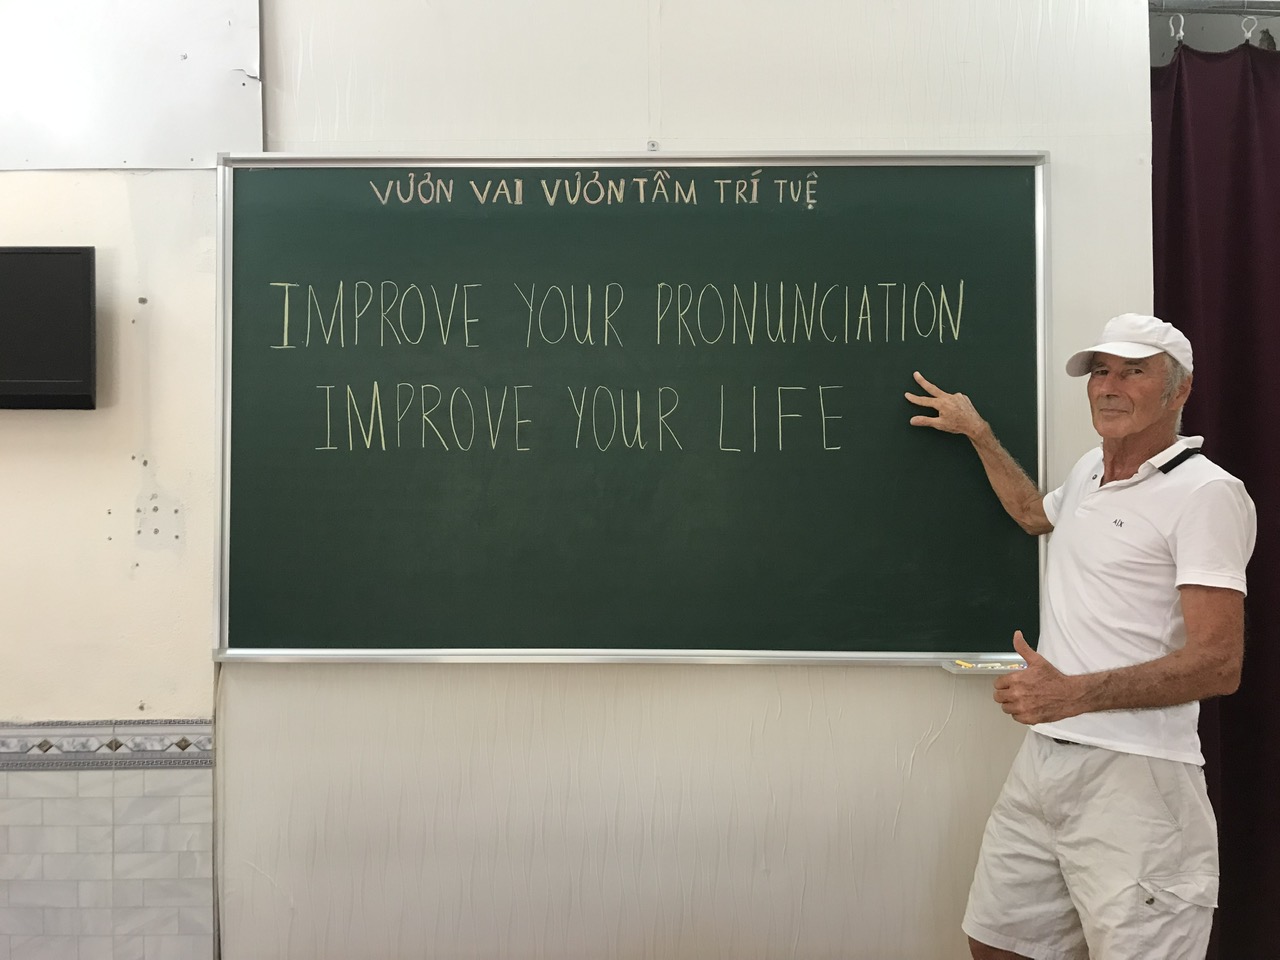 VƯƠN VAI VƯƠN TẦM TRÍ TUỆ
IMPROVE YOUR PRONUNCIATION
IMPROVE YOUR LIFE
A|X